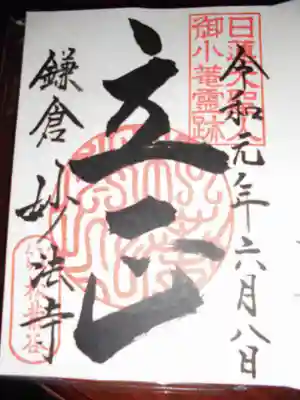 令和元年六月八日
日蓮大聖人
御小菴霊跡
立正
鎌倉妙法寺